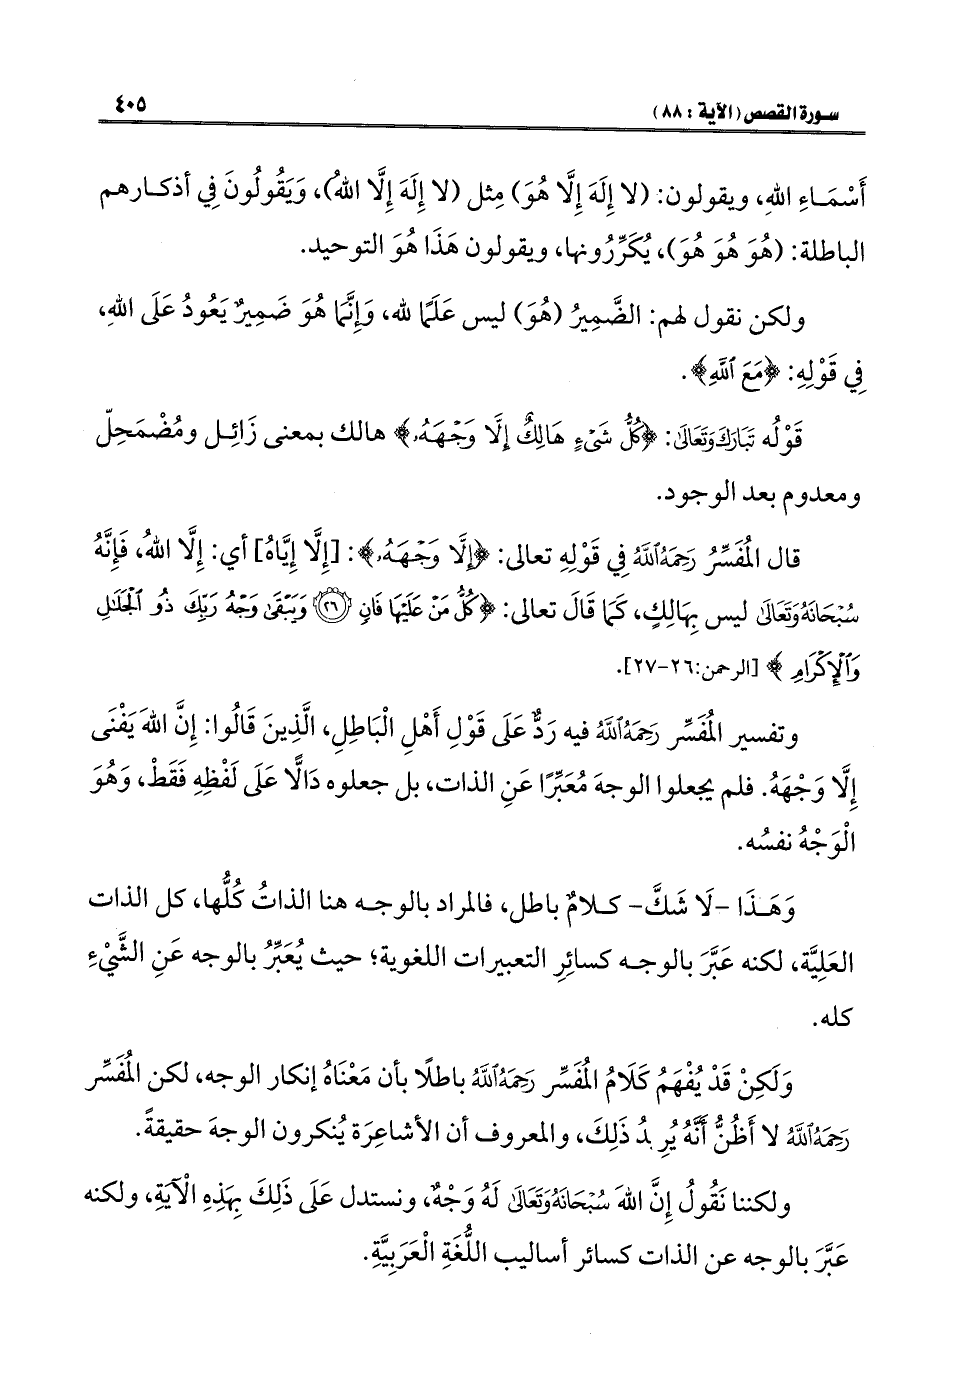 سورة القصص (الآية : ٨٨)
٤٠٥
أَسْمَـاءِ اللهِ، ويقولون: (لا إِلَهَ إِلَّا هُوَ) مِثل (لا إِلَهَ إِلَّا اللهُ)، وَيَقُولُونَ فِي أذكـارهم
الباطلة: (هُوَ هُوَ هُوَ)، يُكَرِّرُونها، ويقولون هَذَا هُوَ التوحيد.
ولكن نقول لهم: الضَّمِيرُ (هُوَ) ليس عَلَمًا لله، وَإِنَّمَا هُوَ ضَمِيرٌ يَعُودُ عَلَى اللهِ،
فِي قَوْلِهِ: ﴿مَعَ ٱللَّهِ﴾.
قَوْلُه تَبَارَكَ وَتَعَالَى: ﴿كُلُّ شَىْءٍ هَالِكٌ إِلَّا وَجْهَهُۥ﴾ هالك بمعنى زَائِـل ومُضْمَحِلّ
ومعدوم بعد الوجود.
قال المُفَسِّرُ رَحِمَهُ ٱللَّهُ فِي قَوْلِهِ تعالى: ﴿إِلَّا وَجْهَهُۥ﴾: [إِلَّا إِيَّاهُ] أي: إِلَّا اللهُ، فَإِنَّهُ
سُبْحَانَهُ وَتَعَالَى ليس بِهَالِكٍ، كَمَا قَالَ تعالى: ﴿كُلُّ مَنْ عَلَيْهَا فَانٍ ۝٢٦ وَيَبْقَىٰ وَجْهُ رَبِّكَ ذُو ٱلْجَلَٰلِ
وَٱلْإِكْرَامِ﴾ [الرحمن:٢٦-٢٧].
وتفسير المُفَسِّر رَحِمَهُ ٱللَّهُ فيه رَدٌّ عَلَى قَوْلِ أَهْلِ الْبَاطِلِ، الَّذِينَ قَالُوا: إِنَّ اللهَ يَفْنَى
إِلَّا وَجْهَهُ. فلم يجعلوا الوجهَ مُعَبِّرًا عَنِ الذات، بل جعلوه دَالًّا عَلَى لَفْظِهِ فَقَطْ، وَهُوَ
الْوَجْهُ نفسُه.
وَهَـذَا -لَا شَكَّ- كـلامٌ باطل، فالمراد بالوجـه هنا الذاتُ كُلُّها، كل الذات
العَلِيَّة، لكنه عَبَّرَ بالوجـه كسائِرِ التعبيرات اللغوية؛ حيث يُعَبِّرُ بالوجه عَنِ الشَّيْءِ
كله.
وَلَكِنْ قَدْ يُفْهَمُ كَلَامُ المُفَسِّر رَحِمَهُ ٱللَّهُ باطلًا بأن مَعْنَاهُ إنكار الوجه، لكن المُفَسِّر
رَحِمَهُ ٱللَّهُ لا أَظُنُّ أَنَّهُ يُرِيدُ ذَلِكَ، والمعروف أن الأشاعِرَة يُنكرون الوجهَ حقيقةً.
ولكننا نَقُولُ إِنَّ اللهَ سُبْحَانَهُ وَتَعَالَى لَهُ وَجْهٌ، ونستدل عَلَى ذَلِكَ بِهَذِهِ الْآيَةِ، ولكنه
عَبَّرَ بالوجه عن الذات كسائر أساليب اللُّغَةِ الْعَرَبِيَّةِ.